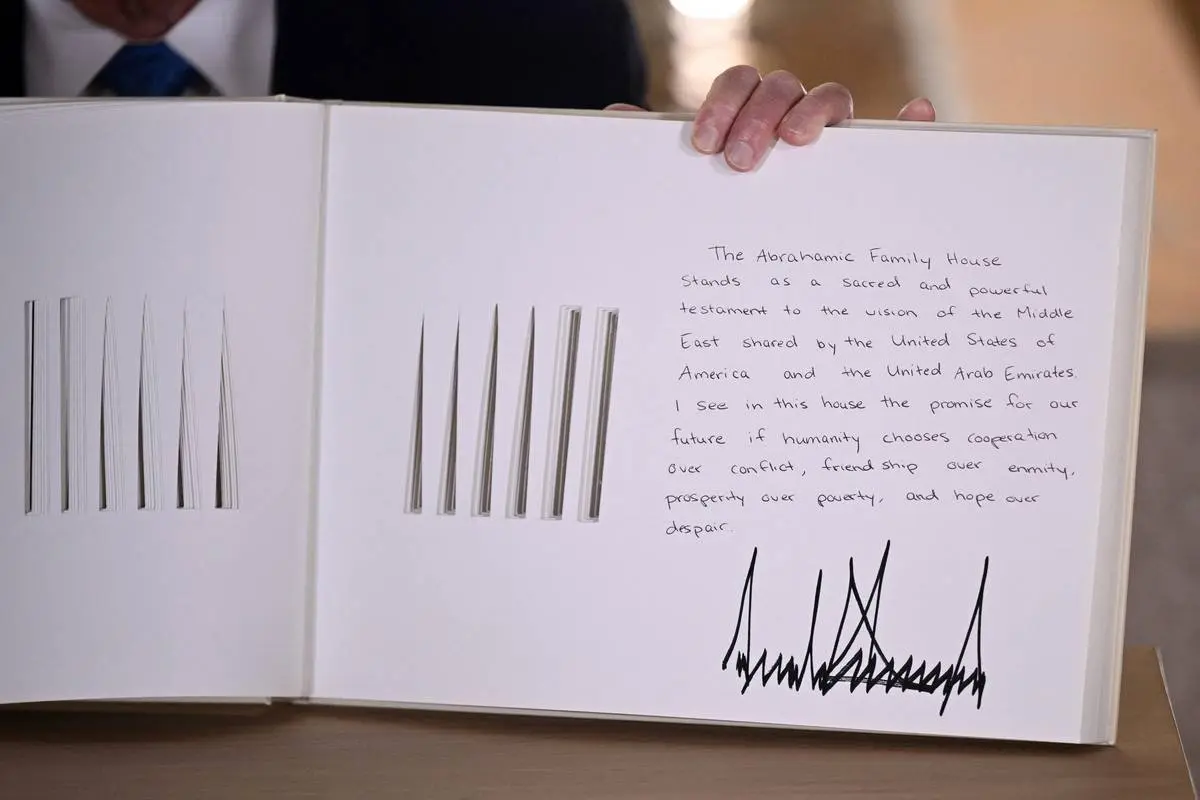 The Abrahamic Family House
Stands as a sacred and powerful
testament to the vision of the Middle
East shared by the United States of
America and the United Arab Emirates.
I see in this house the promise for our
future if humanity chooses cooperation
over conflict, friendship over enmity,
prosperity over poverty, and hope over
despair.